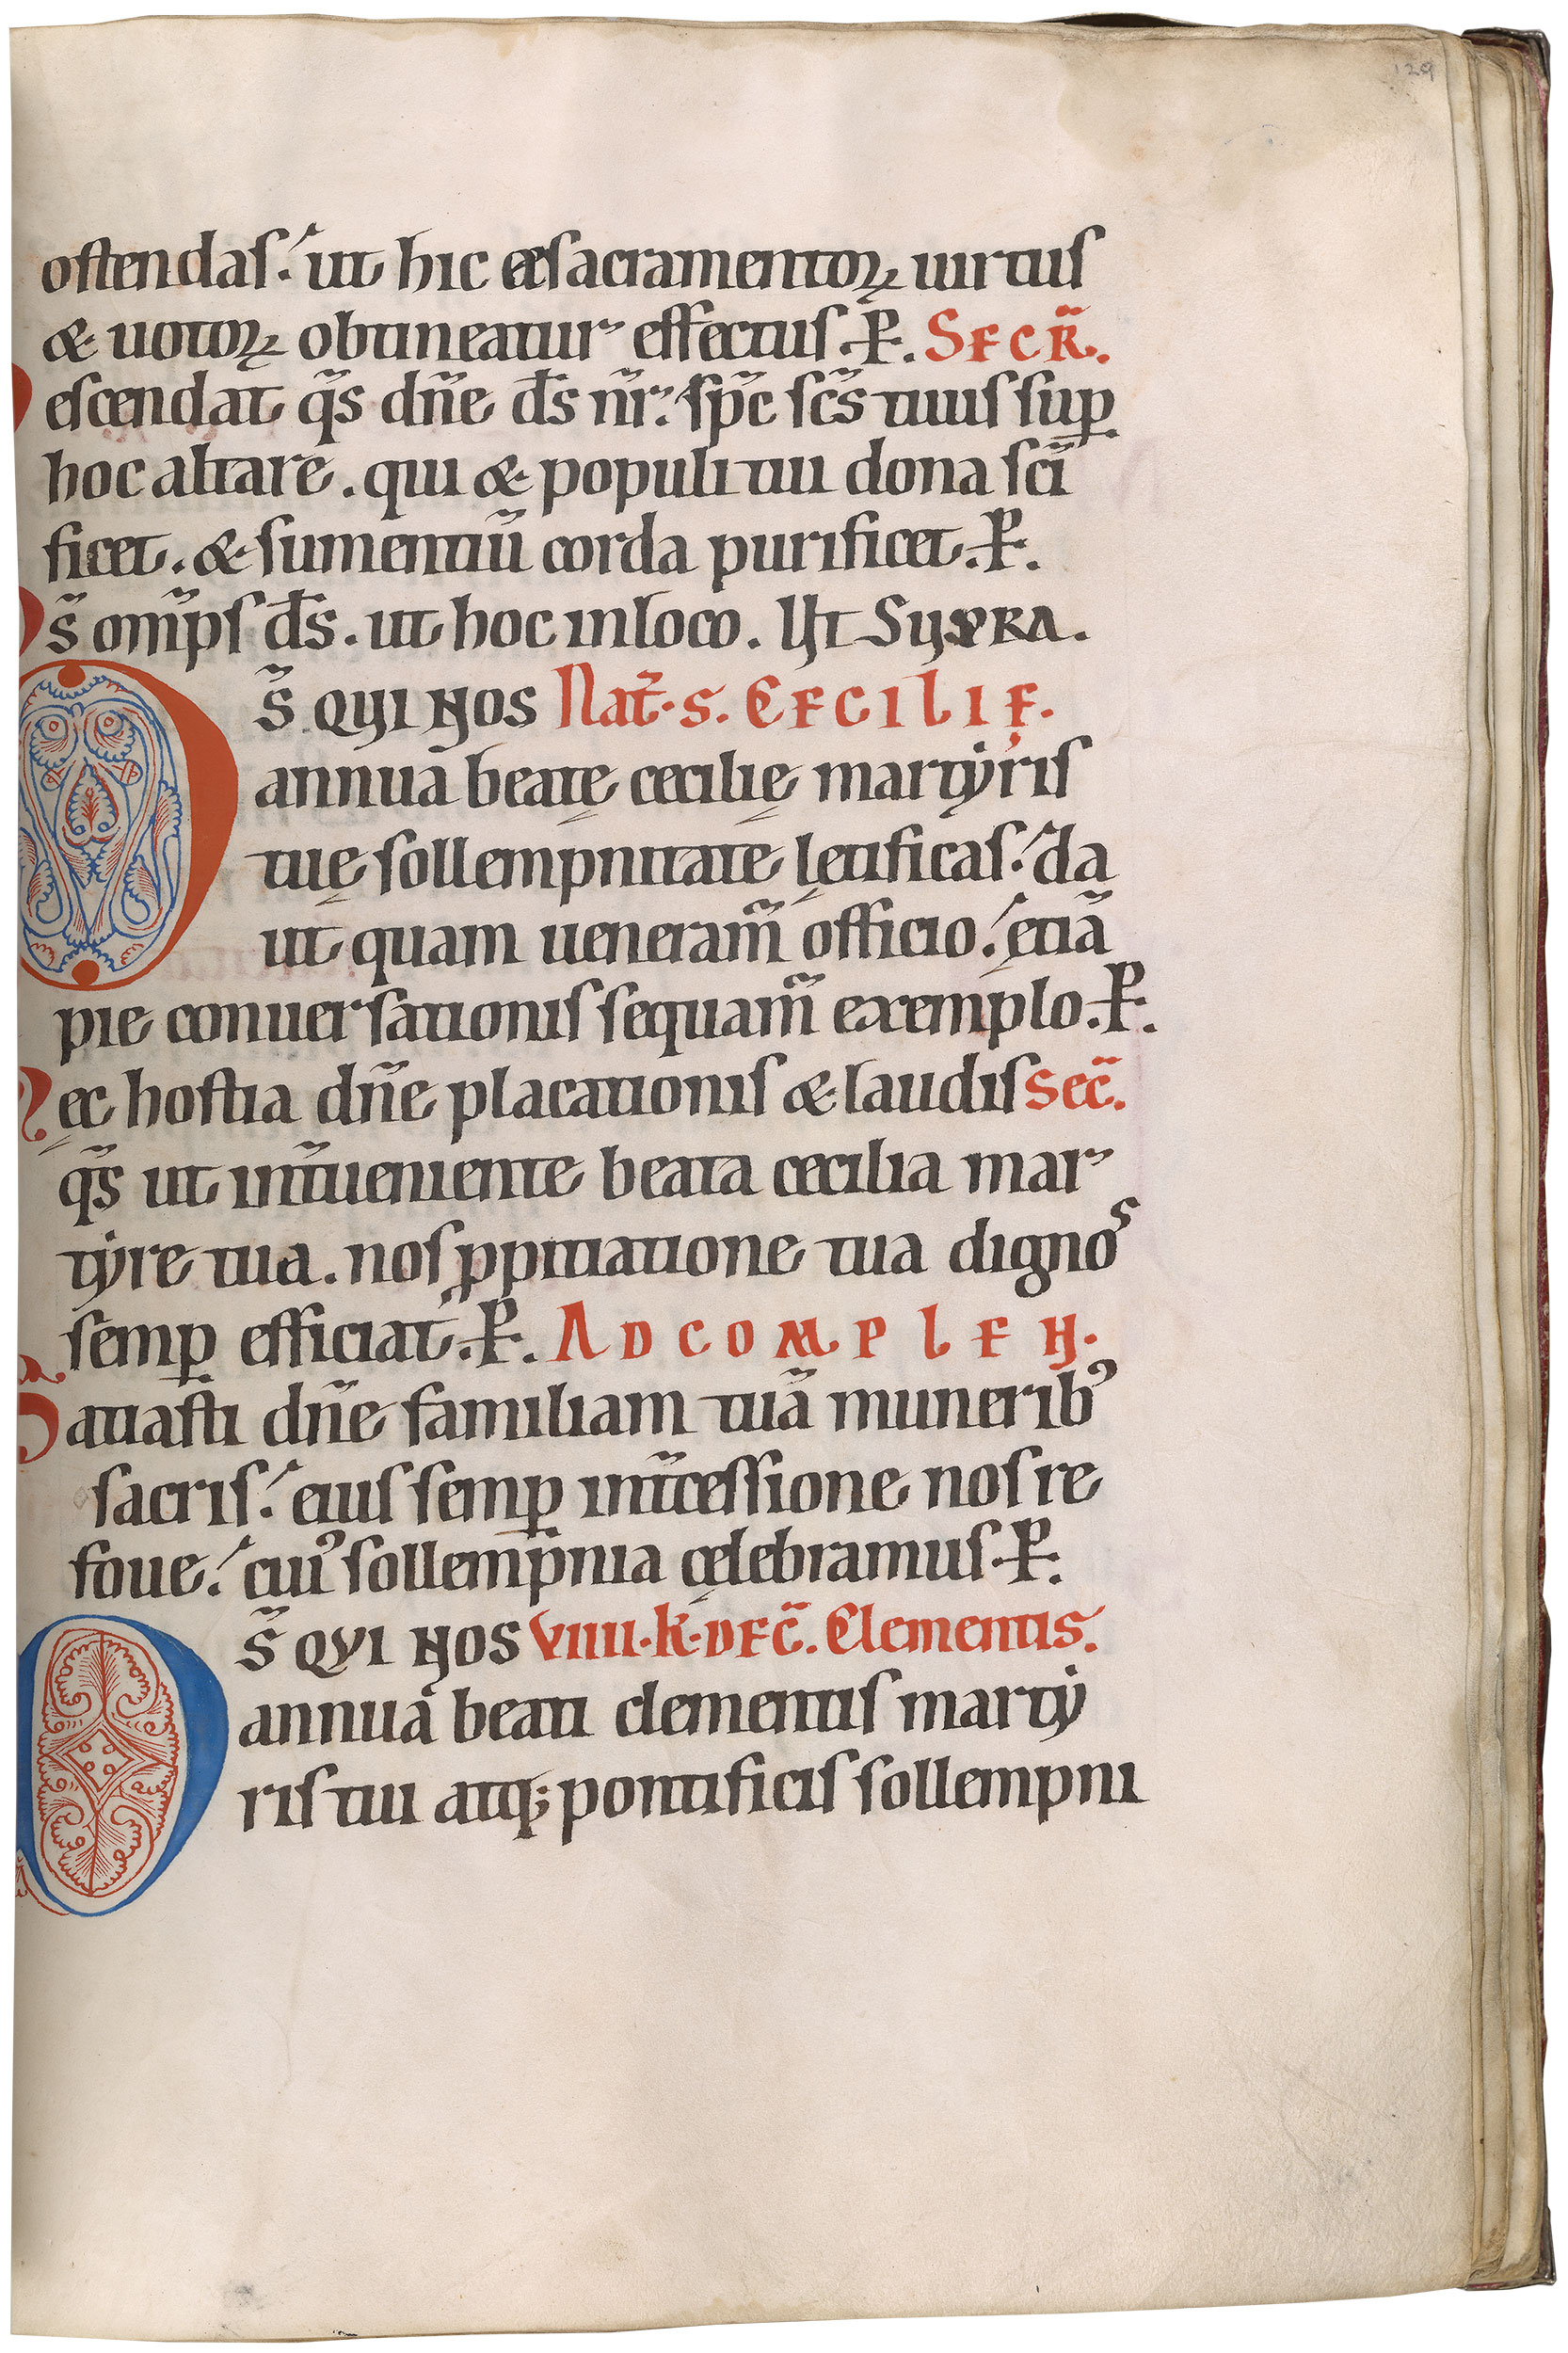 129
ostendas. ut hic & sacramentoꝝ uirtus
& uotoꝝ obtineatur effectus. P. SECR̃.
Descendat q̃s dñe d̃s nr̃. sp̃c sc̃s tuus suꝑ
hoc altare. qui & populi tui dona sc̃i
ficet. & sumentiũ corda purificet. P.
Q̃s om̃ps d̃s. ut hoc in loco. UT SUPRA.
D̃S QUI NOS Nat̃. S. CECILIE.
annuã beatę cecilię martyris
tuę sollempnitatẽ lętificas. da
ut quam ueneram̃ officio. ętiã
pie conuersationis sequam̃ exemplo. P.
Hęc hostia dñe placationis & laudis Sec̃.
q̃s ut int̃ueniente beata cecilia mar
tyre tua. nos ꝓpitiatione tua dignos
semꝑ efficiat̃. P. AD COMPLEN.
Satiasti dñe familiam tuã munerib'
sacris. eius semꝑ int̃cessione nos re
foue. cui' sollempnia cęlebramus. P.
D̃S QVI NOS VIIII. K. DEC̃. Clementis.
annuã beati clementis marty
ris tui atq; pontificis sollempni